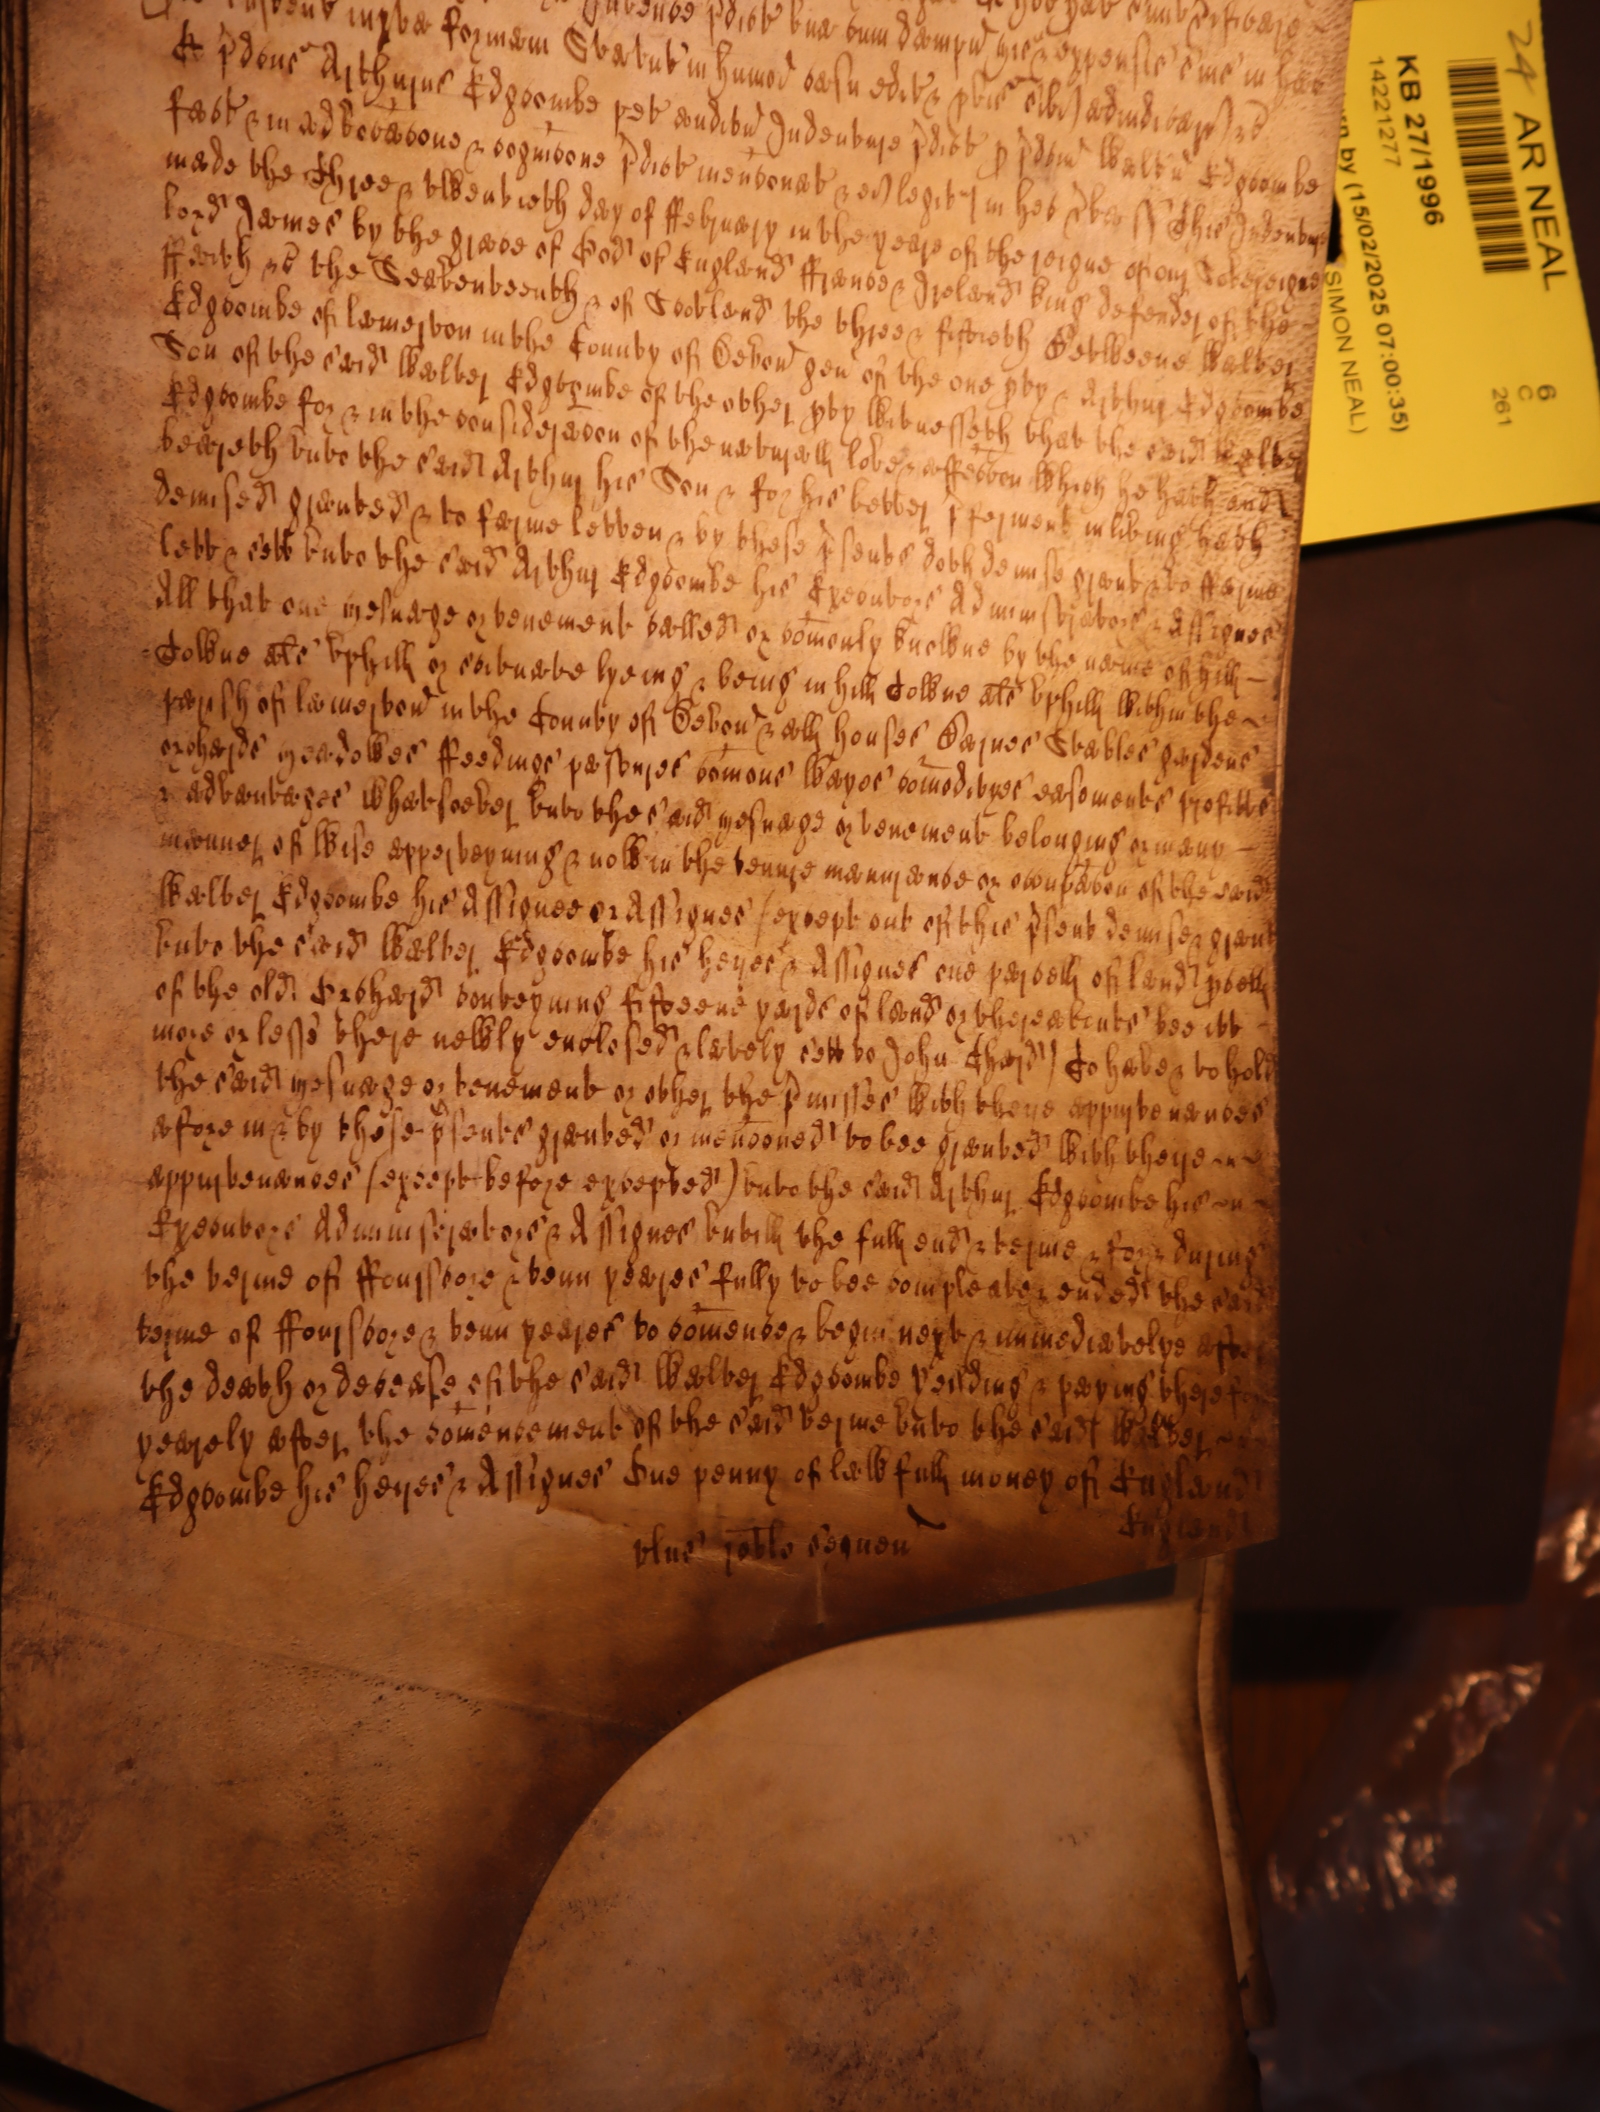 formam Statut in humoi casu edit &
Et pdcus Arthurus Edgcombe pet auditu Indenture pdict p pdcm Walteru Edgcombe
fact & in advocacone & cognicone pdict menconat & ei legit in hec verba ss This Indenture
made the Three & twentieth day of ffebruary in the yeare of the reigne of our Sovereigne
lord James by the grace of God of England ffrance & Ireland king defender of the
ffaith &c the Seaventeenth & of Scotland the three & fiftieth Betweene Walter
Edgcombe of lamerton in the County of Devon gen of the one pty & Arthur Edgcombe
Son of the said Walter Edgcombe of the other pty Witnesseth that the said Walter
Edgcombe for & in the consideracon of the naturall love & affeccon which he hath and
beareth unto the said Arthur his Son & for his better pferment in living hath
demised graunted & to farme letten & by these psents doth demise graunt & to ffarme
lett & sett unto the said Arthur Edgcombe his Executors Administrators & Assignes
All that one mesuage or tenement called or comonly knowne by the name of hill
Towne als uphill or scituate lyeing & being in hill Towne als uphill within the
parish of lamerton in the County of Devon & all houses Barnes Stables gardens
orchards meadowes ffeedings pastures comons wayes comodityes easements profitts
& advantages whatsoever unto the said mesuage or tenement belonging or in any
manner of wise apperteyning & now in the tenure manurance or occupacon of the said
Walter Edgcombe his Assignee or Assignes (except out of this psent demise & graunt
unto the said Walter Edgcombe his heyres & Assignes one parcell of land pcell
of the old Orchard conteyning fifteene yards of land or thereabouts bee itt
more or lesse there newly enclosed & lately sett to John Chard) To have & to hold
the said mesuage or tenement or other the pmisses with theire appurtenances
afore in & by these psents graunted or menconed to bee graunted with theire
appurtenances (except before excepted) unto the said Arthur Edgcombe his
Executors Administrators & Assignes untill the full end & terme & for & during
the terme of ffourscore & tenn yeares fully to bee compleate & ended the said
terme of ffourscore & tenn yeares to comence & begin next & immediatelye after
the death or decease of the said Walter Edgcombe Yeilding & paying therefore
yearely after the comencement of the said terme unto the said Walter
Edgcombe his heyres & Assignes One penny of lawfull money of England
England
24 AR NEAL
KB 27/1996
14221277
by (15/02/2025 07:00:35)
SIMON NEAL)
6
C
261